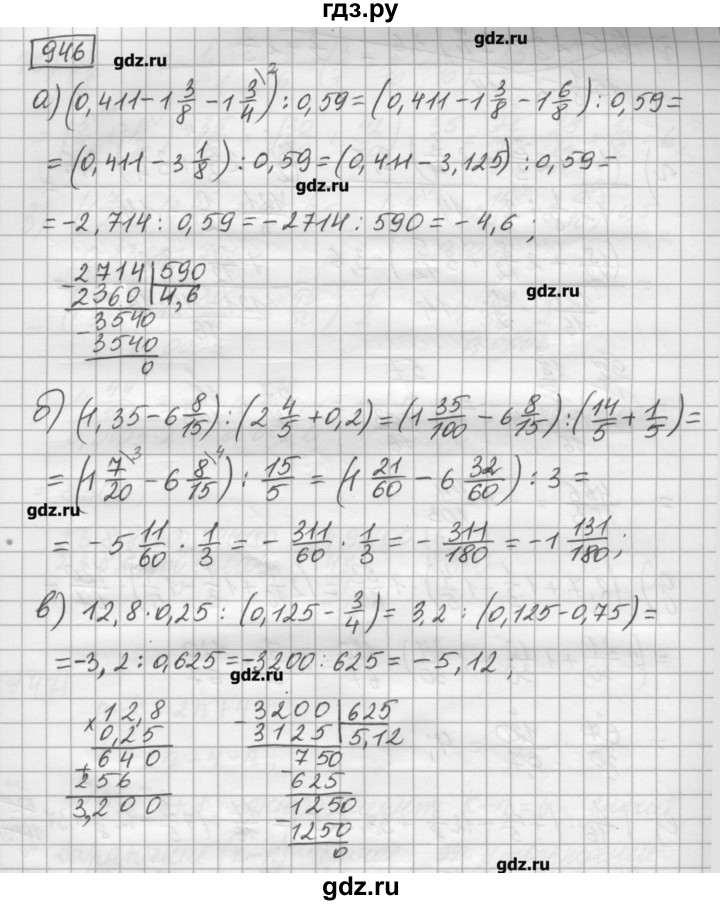 гдз.ру
gdz.ru
946
gdz.ru
а) (0,411 - 1 3/8 - 1 3/4\2) : 0,59 = (0,411 - 1 3/8 - 1 6/8) : 0,59 =
= (0,411 - 3 1/8) : 0,59 = (0,411 - 3,125) : 0,59 =
gdz.ru
= -2,714 : 0,59 = -2714 : 590 = -4,6 ;
- 2714 | 590
2360 | 4,6
gdz.ru
- 3540
3540
0
б) (1,35 - 6 8/15) : (2 4/5 + 0,2) = (1 35/100 - 6 8/15) : (14/5 + 1/5) =
= (1 7/20\3 - 6 8/15\4) : 15/5 = (1 21/60 - 6 32/60) : 3 =
gdz.ru
= -5 11/60 · 1/3 = - 311/60 · 1/3 = - 311/180 = -1 131/180 ;
в) 12,8 · 0,25 : (0,125 - 3/4) = 3,2 : (0,125 - 0,75) =
= -3,2 : 0,625 = -3200 : 625 = -5,12 ;
gdz.ru
× 12,8
0,25
+ 640
256
3,200
- 3200 | 625
3125 | 5,12
- 750
625
- 1250
1250
0
gdz.ru
gdz.ru